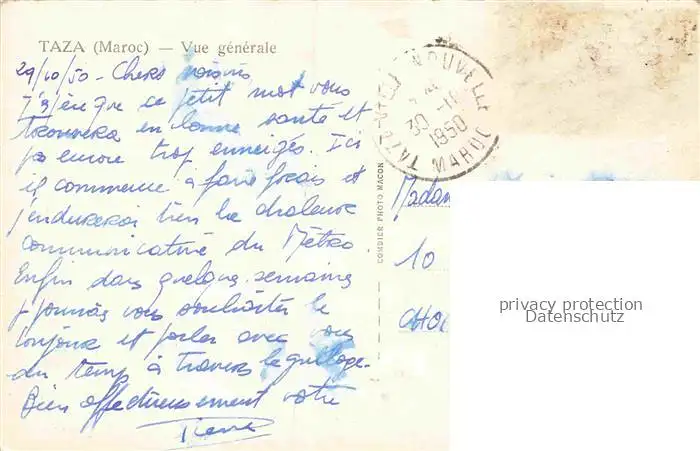 TAZA (Maroc) — Vue générale
29/10/50 - Chers voisins
J'espère que ce petit mot vous
trouvera en bonne santé et
pas encore trop enneigés. Ici
il commence à faire frais et
j'endurerai bien la chaleur
communicative du Métro.
Enfin dans quelques semaines
je pourrai vous souhaiter le
bonjour et parler avec vous
du temps à travers le grillage.
Bien affectueusement votre
Pierre
TAZA-VILLE NOUVELLE
30 -10
1950
MAROC
COMBIER PHOTO MACON
Madam
10
CHOL
privacy protection
Datenschutz